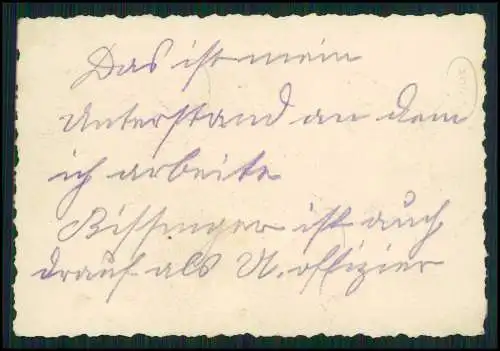 Das ist mein
Unterstand an dem
ich arbeite
Bissinger ist auch
drauf als U.offizier